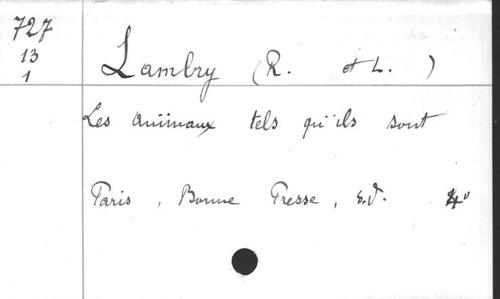 727
13
1
Lambry (R. et L.)
Les animaux tels qu'ils sont
Paris, Bonne Presse, s.d. 4°